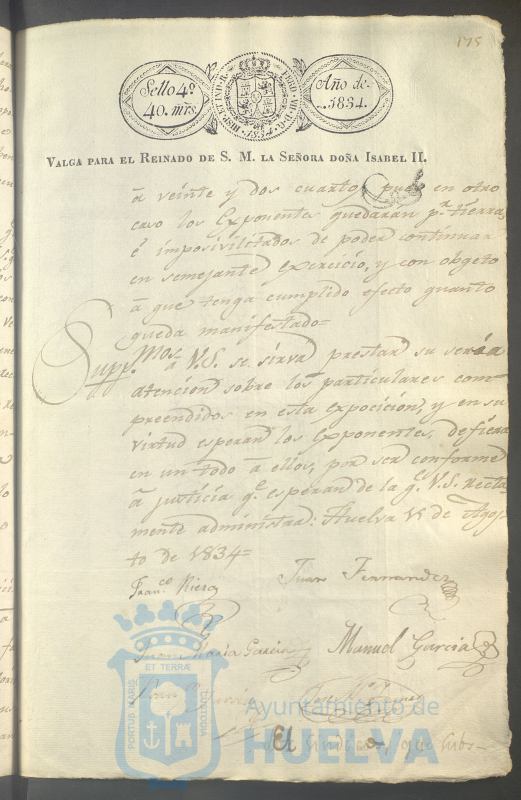 175
Sello 4º
40. mrs.
HISP. ET IND. R.
FERD. VII. D. G.
1834.
Año de
1834.
VALGA PARA EL REINADO DE S. M. LA SEÑORA DOÑA ISABEL II.
à veinte y dos cuartos, pues en otro
caso los Exponentes quedaran pr. tierra,
è imposivilitados de poder continuar
en semejante exercicio, y con obgeto
à que tenga cumplido efecto quanto
queda manifestado=
Suppmos. a V.S. se sirva prestar su seria
atencion sobre los particulares com
preendidos en esta exposicion, y en su
virtud esperan los Exponentes, defiera
en un todo à ellos, por ser conforme
à justicia qe. esperan de la qe. V.S. recta
mente administra: Huelva 15 de Agos
to de 1834=
Franco. Riera
Juan Fernandez
Juan Maria Garcia
Manuel Garcia
PORTUS MARIS
ET TERRÆ
CUSTODIA
Ayuntamiento de
HUELVA
El Sindico, que subs-